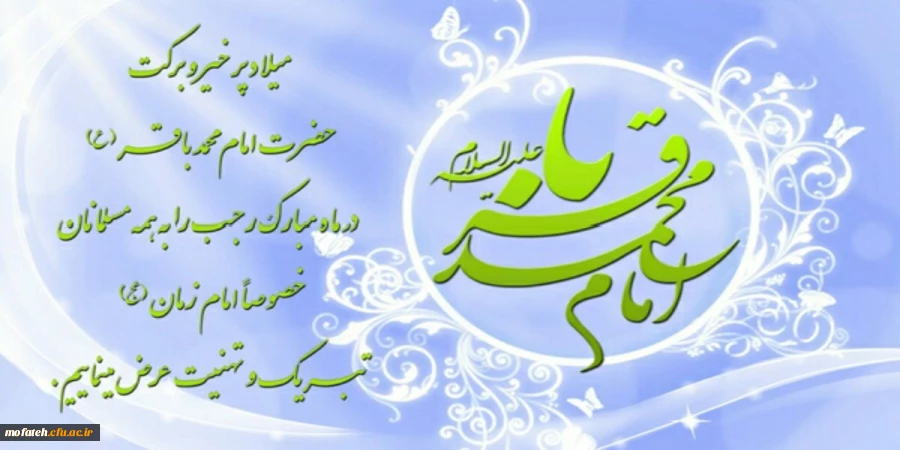 میلاد پر خیر و برکت
حضرت امام محمد باقر (ع)
در ماه مبارک رجب را به همه مسلمانان
خصوصاً امام زمان (عج)
تبریک و تهنیت عرض مینماییم.
امام محمد باقر علیه السلام
mofateh.cfu.ac.ir